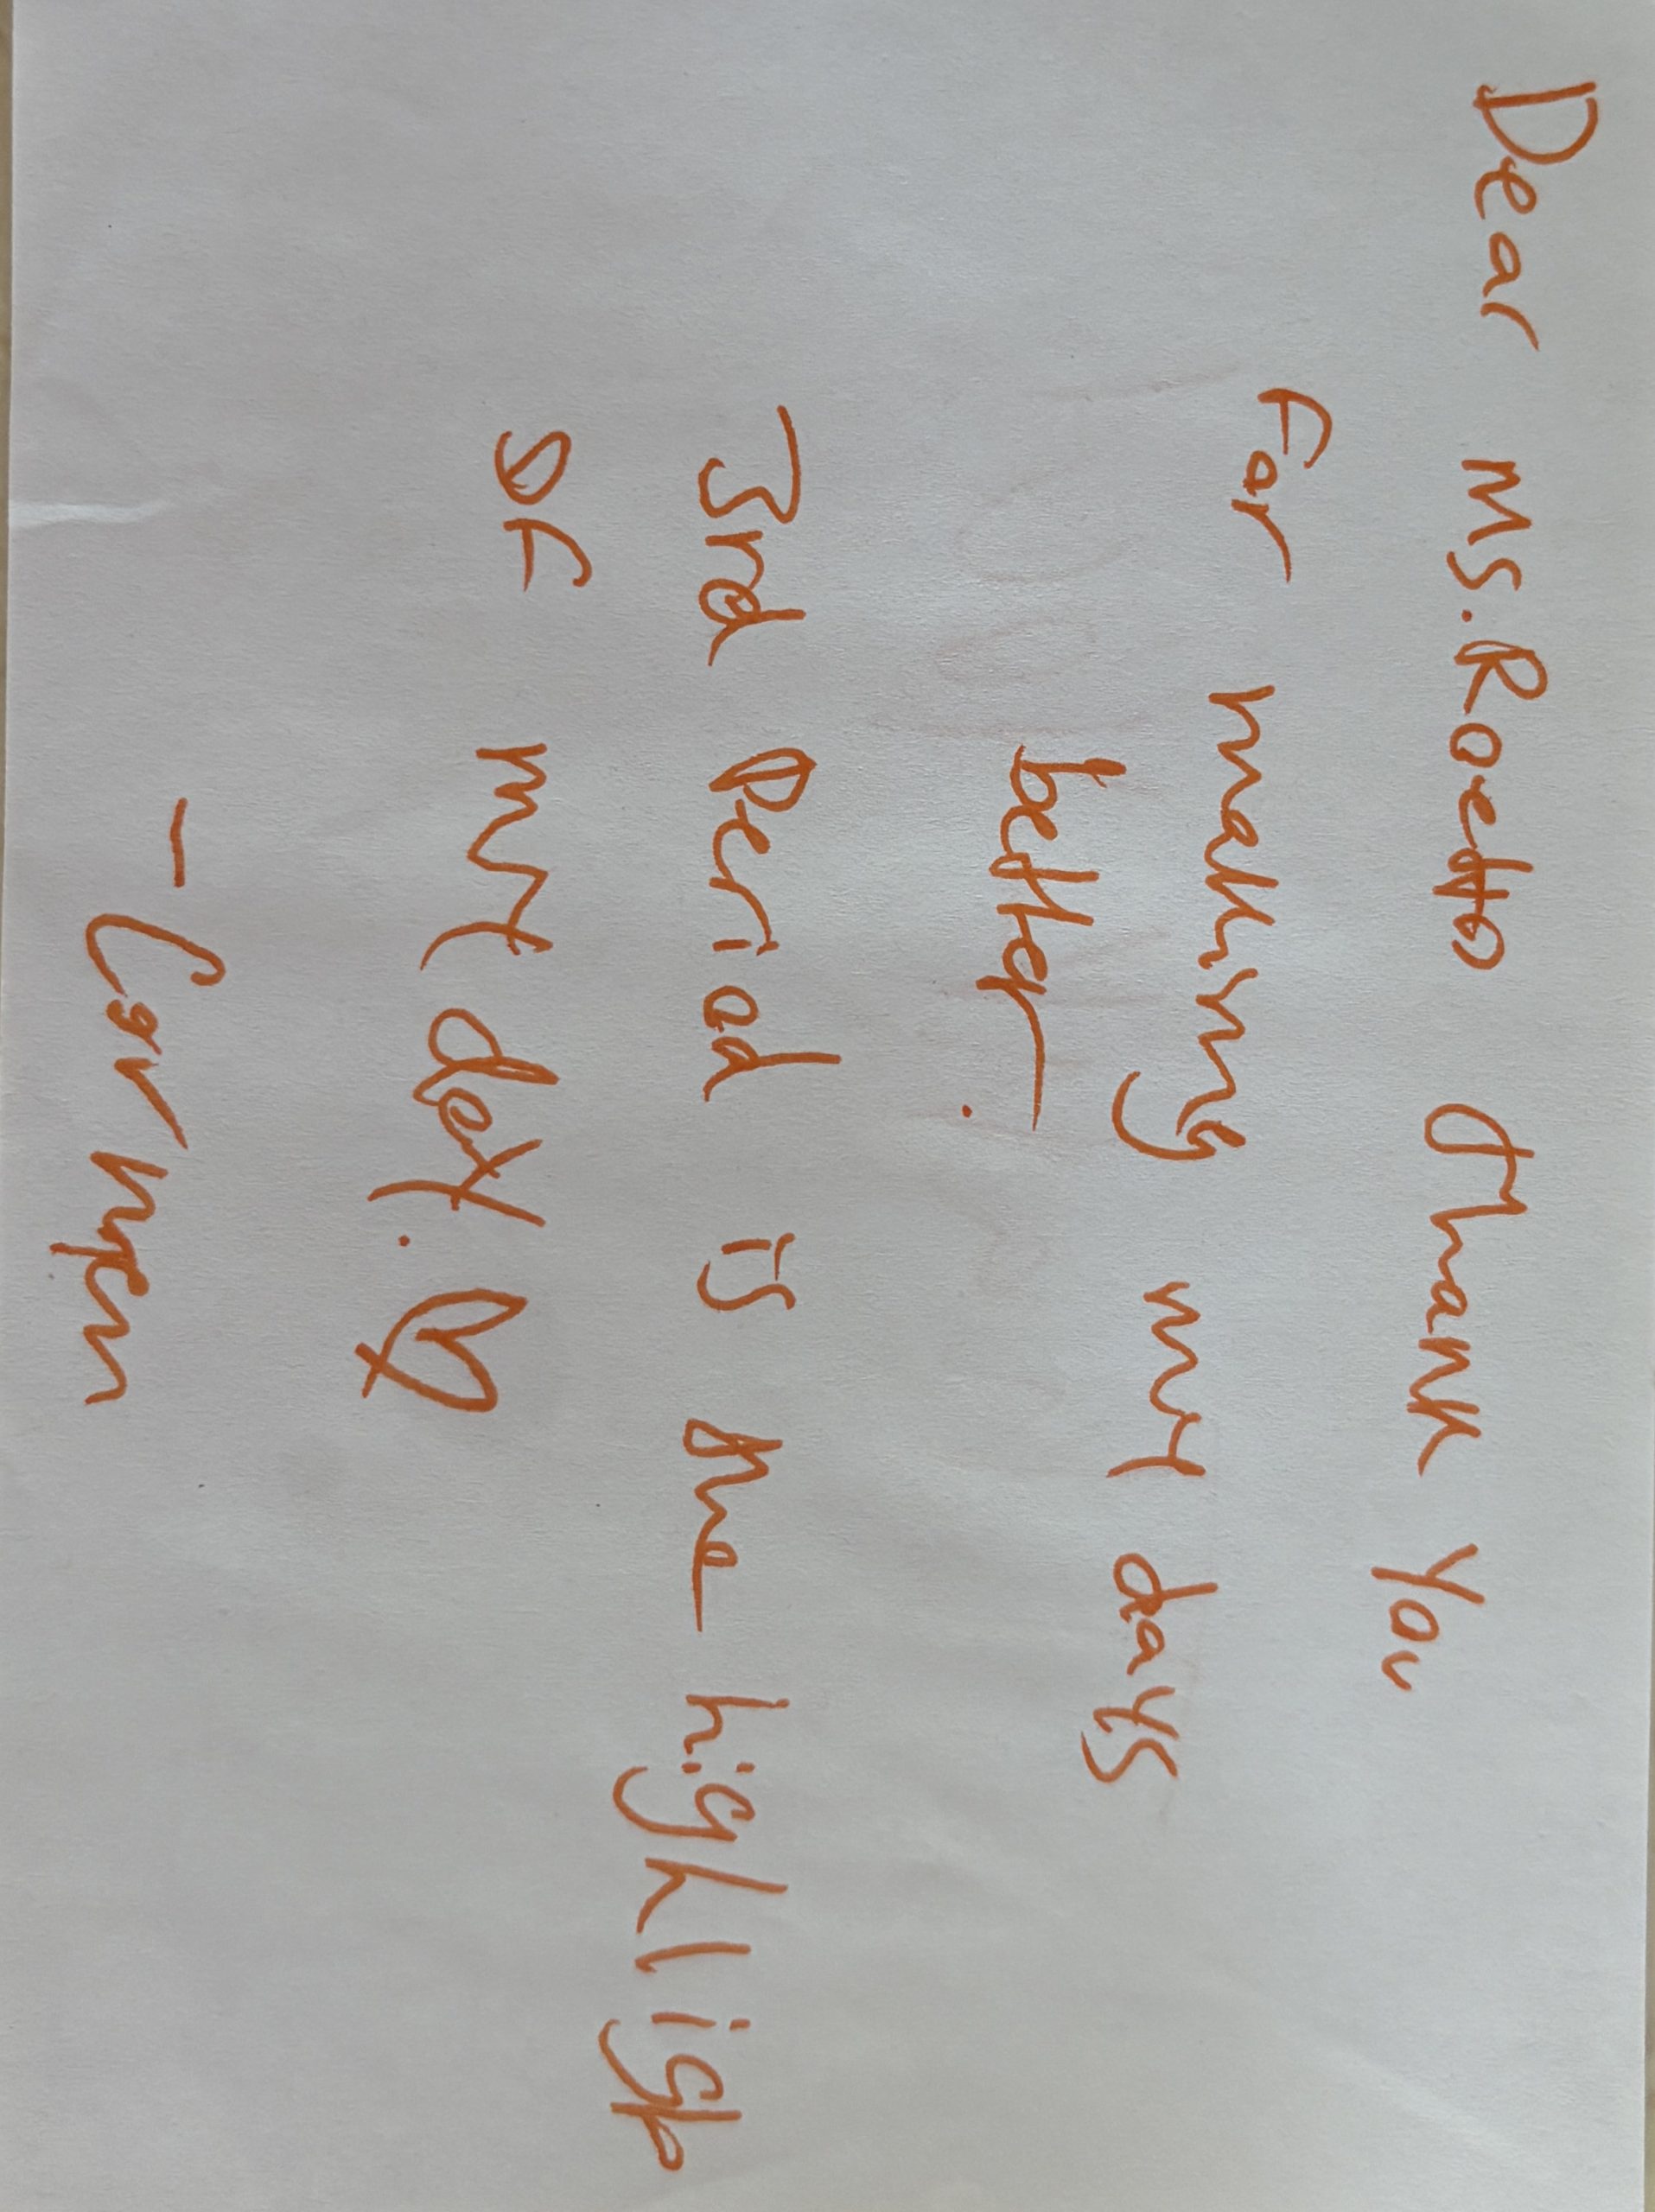 Dear Ms. Roetto thank you
for making my days
better.
3rd Period is the highlight
of my day. ♡
- Carmen